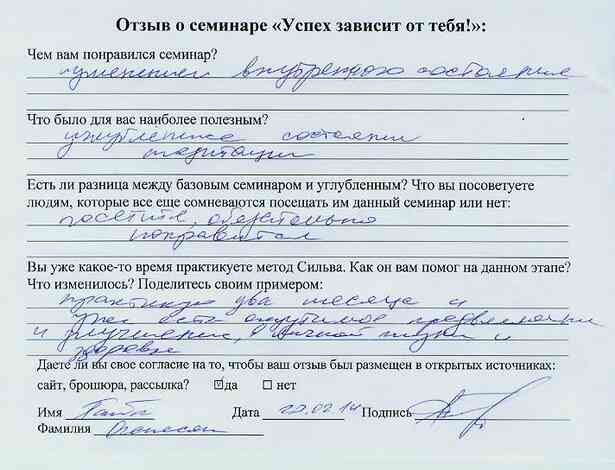 Отзыв о семинаре «Успех зависит от тебя!»:
Чем вам понравился семинар?
изменением внутреннего состояния
Что было для вас наиболее полезным?
углубление состояния
медитации
Есть ли разница между базовым семинаром и углубленным? Что вы посоветуете
людям, которые все еще сомневаются посещать им данный семинар или нет:
посетите, обязательно
понравится
Вы уже какое-то время практикуете метод Сильва. Как он вам помог на данном этапе?
Что изменилось? Поделитесь своим примером:
практикую два месяца и
уже есть ощутимое
и улучшение, в личной жизни и
здоровье
Даете ли вы свое согласие на то, чтобы ваш отзыв был размещен в открытых источниках:
сайт, брошюра, рассылка? ☑да ☐ нет
Имя Дата 22.02.14 Подпись
Фамилия Оганесян